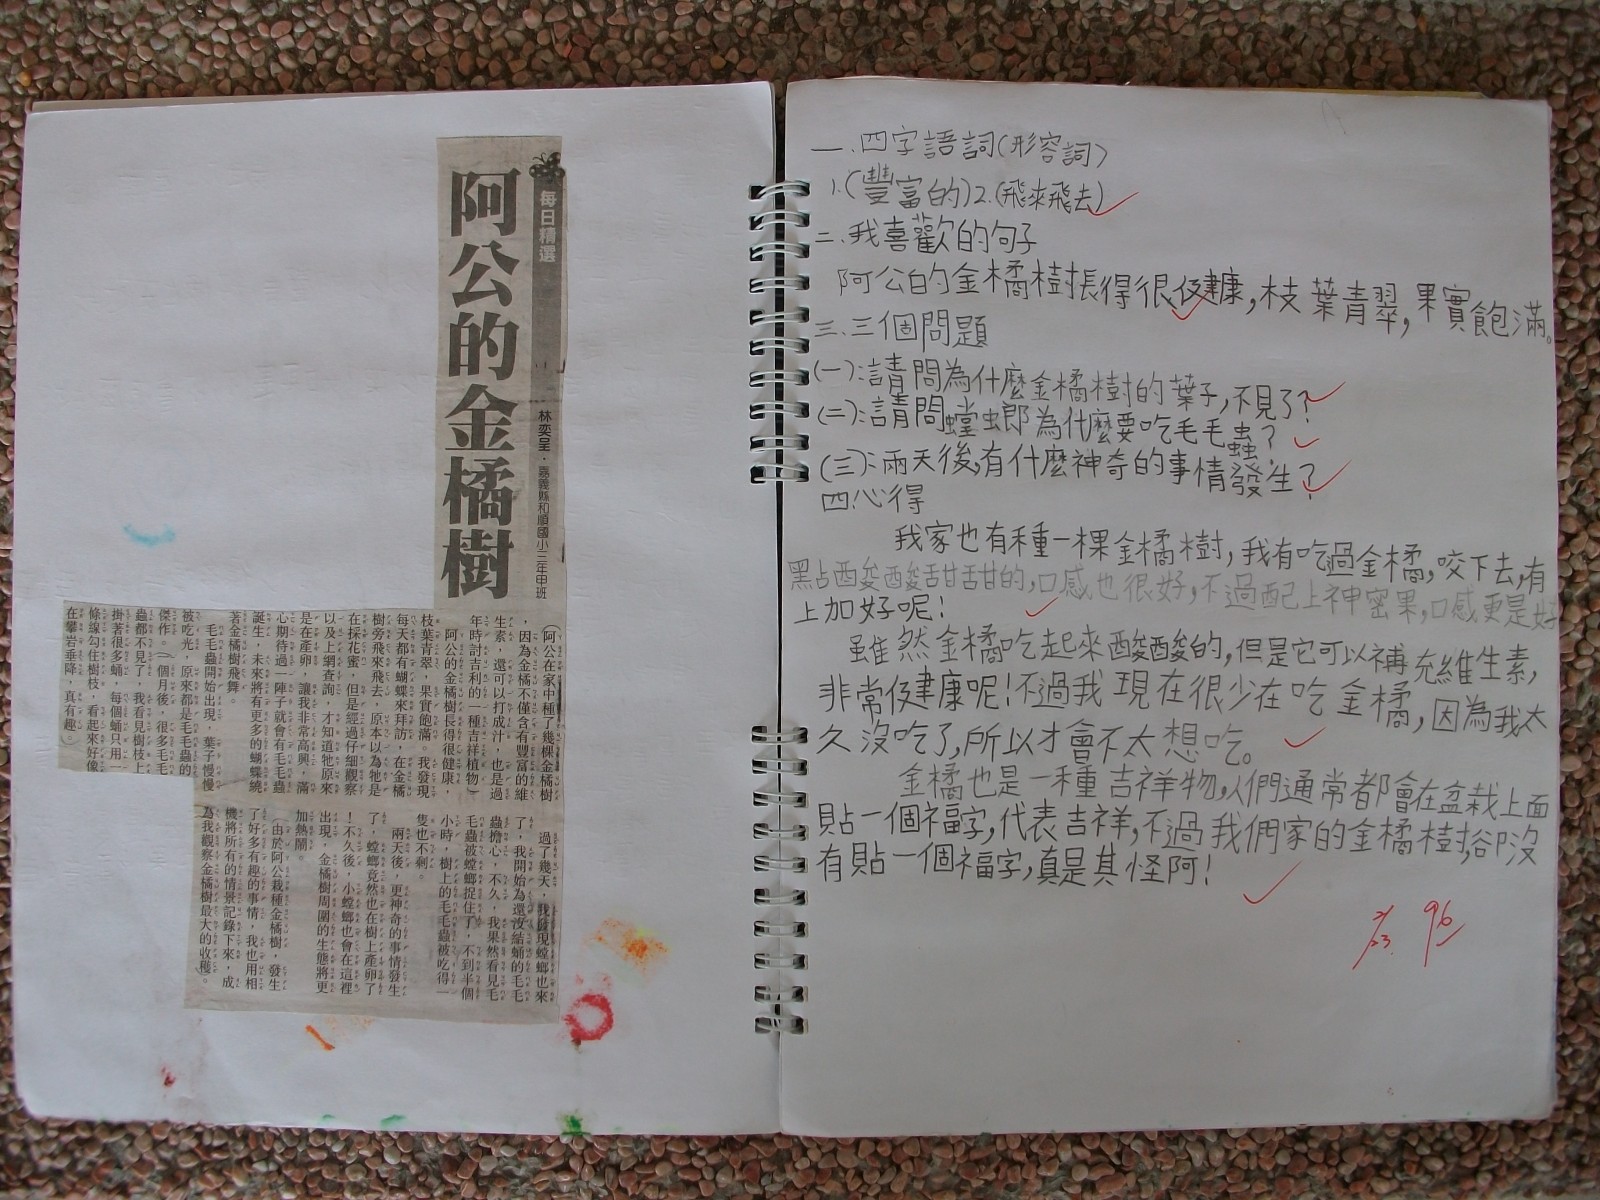 每日精選
阿公的金橘樹
林奕呈．嘉義縣和順國小三年申班
（阿公在家中種了幾棵金橘樹
，因為金橘不僅含有豐富的維
生素，還可以打成汁，也是過
年時討吉利的一種吉祥植物）
阿公的金橘樹長得很健康，
枝葉青翠，果實飽滿。我發現
每天都有蝴蝶來拜訪，在金橘
樹旁飛來飛去，原本以為牠是
在採花蜜，但是經過仔細觀察
以及上網查詢，才知道牠原來
是在產卵，讓我非常高興，滿
心期待過一陣子就會有毛毛蟲
誕生，未來將有更多的蝴蝶繞
著金橘樹飛舞。
毛毛蟲開始出現，葉子慢慢
被吃光，原來都是毛毛蟲的
傑作。（一個月後，很多毛毛
蟲都不見了，我看見樹枝上
掛著很多蛹，每個蛹只用一
條線勾住樹枝，看起來好像
在攀岩垂降，真有趣。）
過了幾天，我發現螳螂也來
了，我開始為還沒結蛹的毛毛
蟲擔心，不久，我果然看見毛
毛蟲被螳螂捉住了，不到半個
小時，樹上的毛毛蟲被吃得一
隻也不剩。
兩天後，更神奇的事情發生
了，螳螂竟然也在樹上產卵了
！不久後，小螳螂也會在這裡
出現，金橘樹周圍的生態將更
加熱鬧。
（由於阿公栽種金橘樹，發生
了好多有趣的事情，我也用相
機將所有的情景記錄下來，成
為我觀察金橘樹最大的收穫。）
一.四字語詞(形容詞)
1.(豐富的)2.(飛來飛去)
二.我喜歡的句子
阿公的金橘樹長得很健康，枝葉青翠，果實飽滿。
三.三個問題
(一):請問為什麼金橘樹的葉子，不見了？
(二):請問螳螂為什麼要吃毛毛蟲？
(三):兩天後，有什麼神奇的事情發生？
四心得
我家也有種一棵金橘樹，我有吃過金橘，咬下去，有
點酸酸甜甜的，口感也很好，不過配上神密果，口感更是好
上加好呢！
雖然金橘吃起來酸酸的，但是它可以補充維生素，
非常健康呢！不過我現在很少在吃金橘，因為我太
久沒吃了，所以才會不太想吃。
金橘也是一種吉祥物，人們通常都會在盆栽上面
貼一個福字，代表吉祥，不過我們家的金橘樹，卻沒
有貼一個福字，真是其怪阿！
96